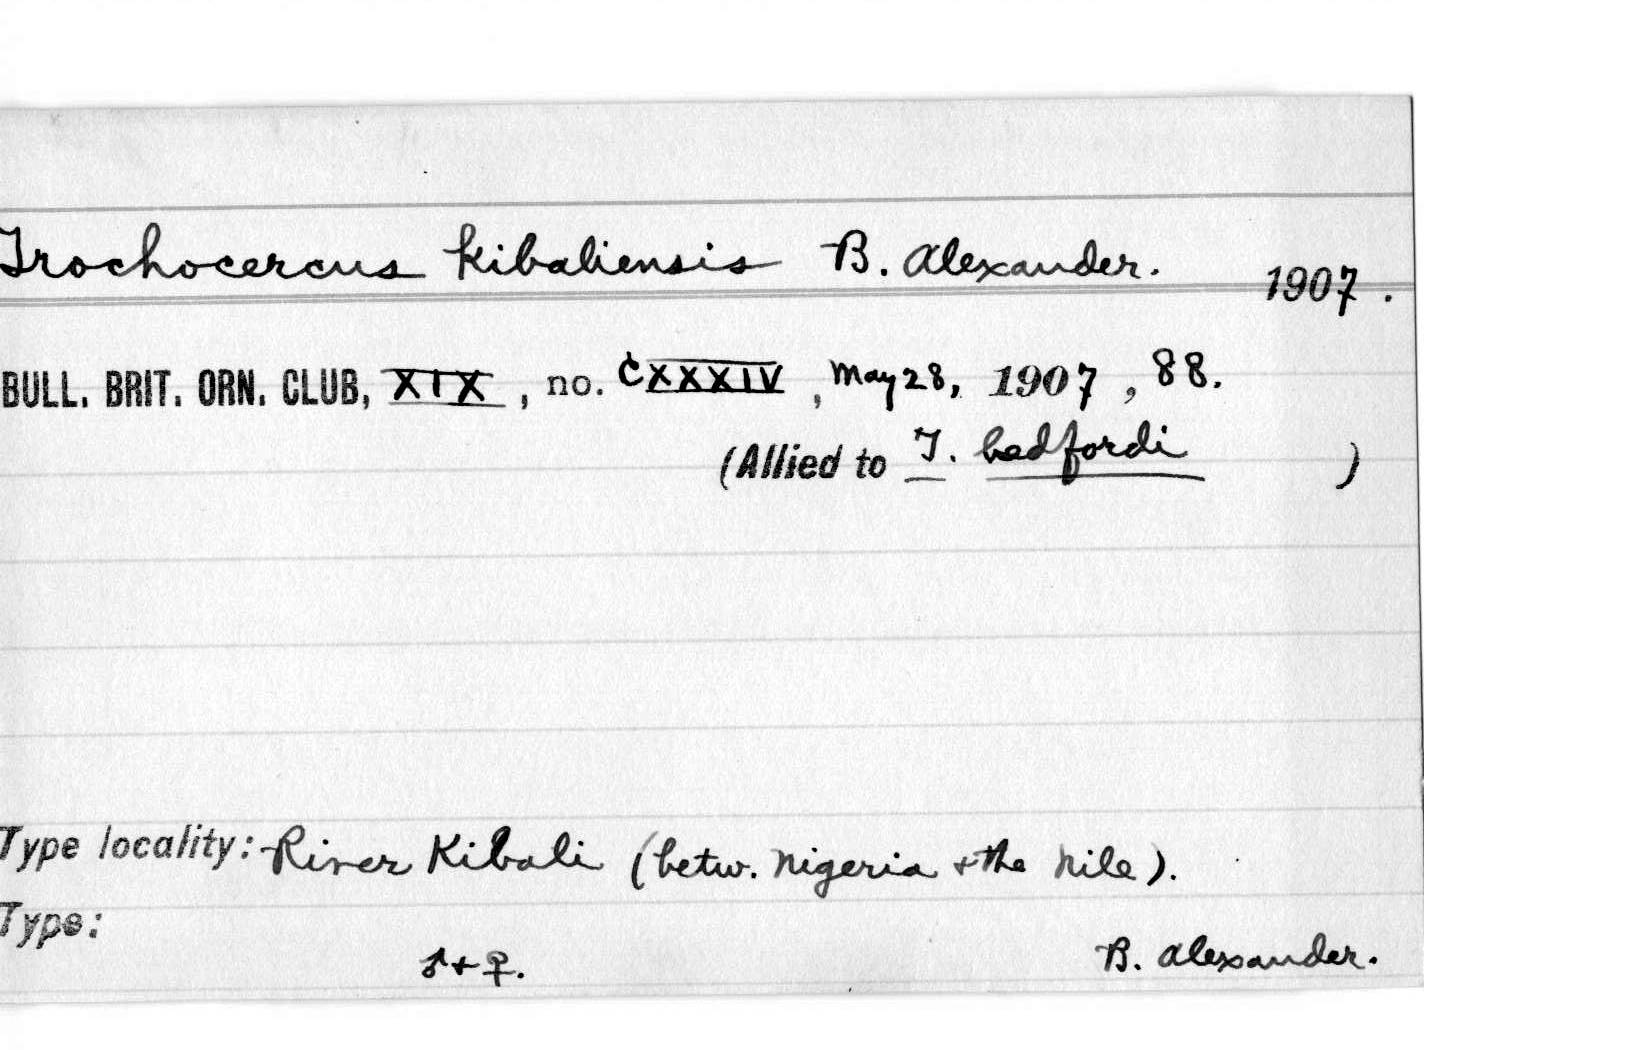 Trochocercus kibaliensis B. Alexander. 1907.
BULL. BRIT. ORN. CLUB, XIX, no. CXXXIV, May 28, 1907, 88.
(Allied to T. bedfordi )
Type locality: River Kibali (betw. Nigeria + the Nile).
Type:
♂ + ♀. B. Alexander.